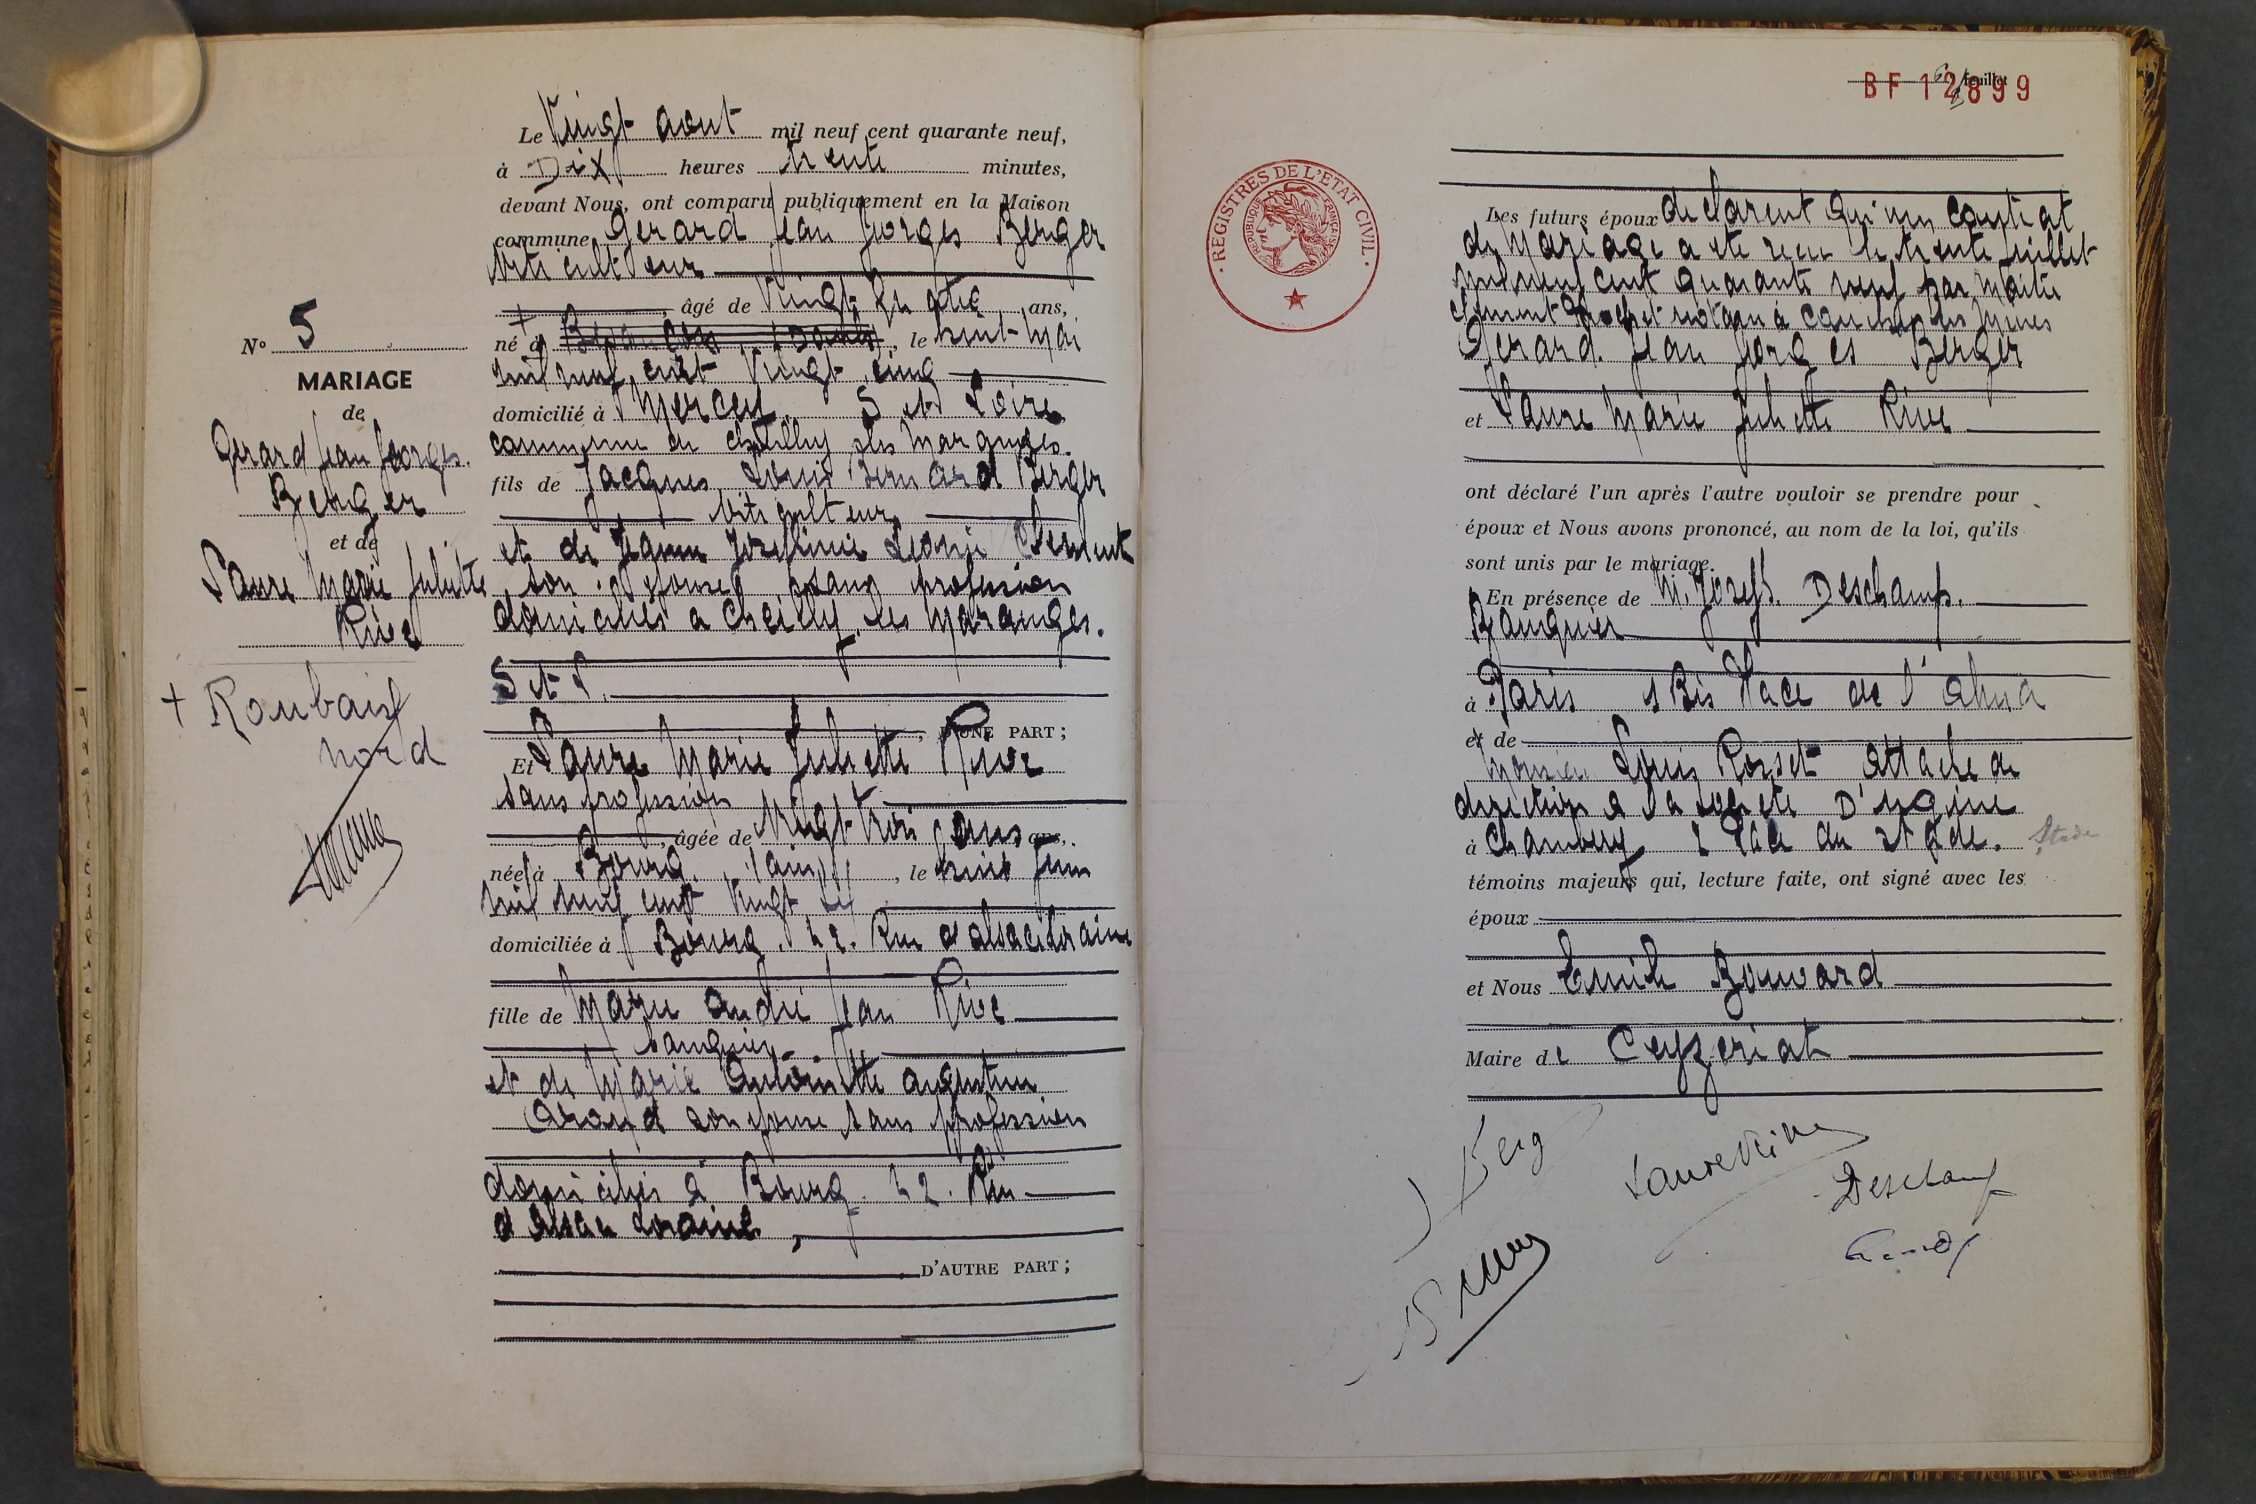 Le Vingt aout mil neuf cent quarante neuf,
à Dix heures trente minutes,
devant Nous, ont comparu publiquement en la Maison
commune Gerard Jean Georges Berger
viticulteur
+ , âgé de Vingt quatre ans,
né à , le huit Mai
mil neuf cent Vingt cinq
domicilié à Mercey S et Loire
commune de cheilly les Maranges
fils de Jacques Louis Bernard Berger
viticulteur
et de Jeanne Josephine Leonie Clement
son epouse sans profession
domiciliés a Cheilly les Maranges.
S et L.
, D'UNE PART ;
Et Laure Marie Juliette Rive
sans profession
, âgée de Vingt trois ans ans,
née à Bourg , le huit Juin
mil neuf cent Vingt six
domiciliée à Bourg. 42. Rue d'alsace Loraine
fille de Marie André Jean Rive
banquier
et de Marie Antoinette augustine
son epouse sans profession
domiciliés à Bourg. 42. Rue
d'alsace Loraine,
D'AUTRE PART ;
N° 5
MARIAGE
de
Gerard Jean Georges.
Berger
et de
Laure Marie Juliette
Rive
+ Roubaix
nord
feuillet
BF 12899
REGISTRES DE L'ETAT CIVIL
REPUBLIQUE FRANÇAISE
Les futurs époux declarent qu'un contrat
de mariage a ete recu le trente juillet
mil neuf cent quarante neuf par Maitre
clement notaire à couches les mines
Gerard Jean Georges Berger
et Laure Marie Juliette Rive
ont déclaré l'un après l'autre vouloir se prendre pour
époux et Nous avons prononcé, au nom de la loi, qu'ils
sont unis par le mariage.
En présence de M. Joseph Deschamps.
Banquier
à Paris 1 Bis Place de l'alma
et de
Monsieur Louis Rosset attache de
direction a la societe D'ugine
à Chambery 2 Place du stade. Stade
témoins majeurs qui, lecture faite, ont signé avec les
époux
et Nous Emile Bouvard
Maire de Ceyzeriat
Laure Rive
Deschamps